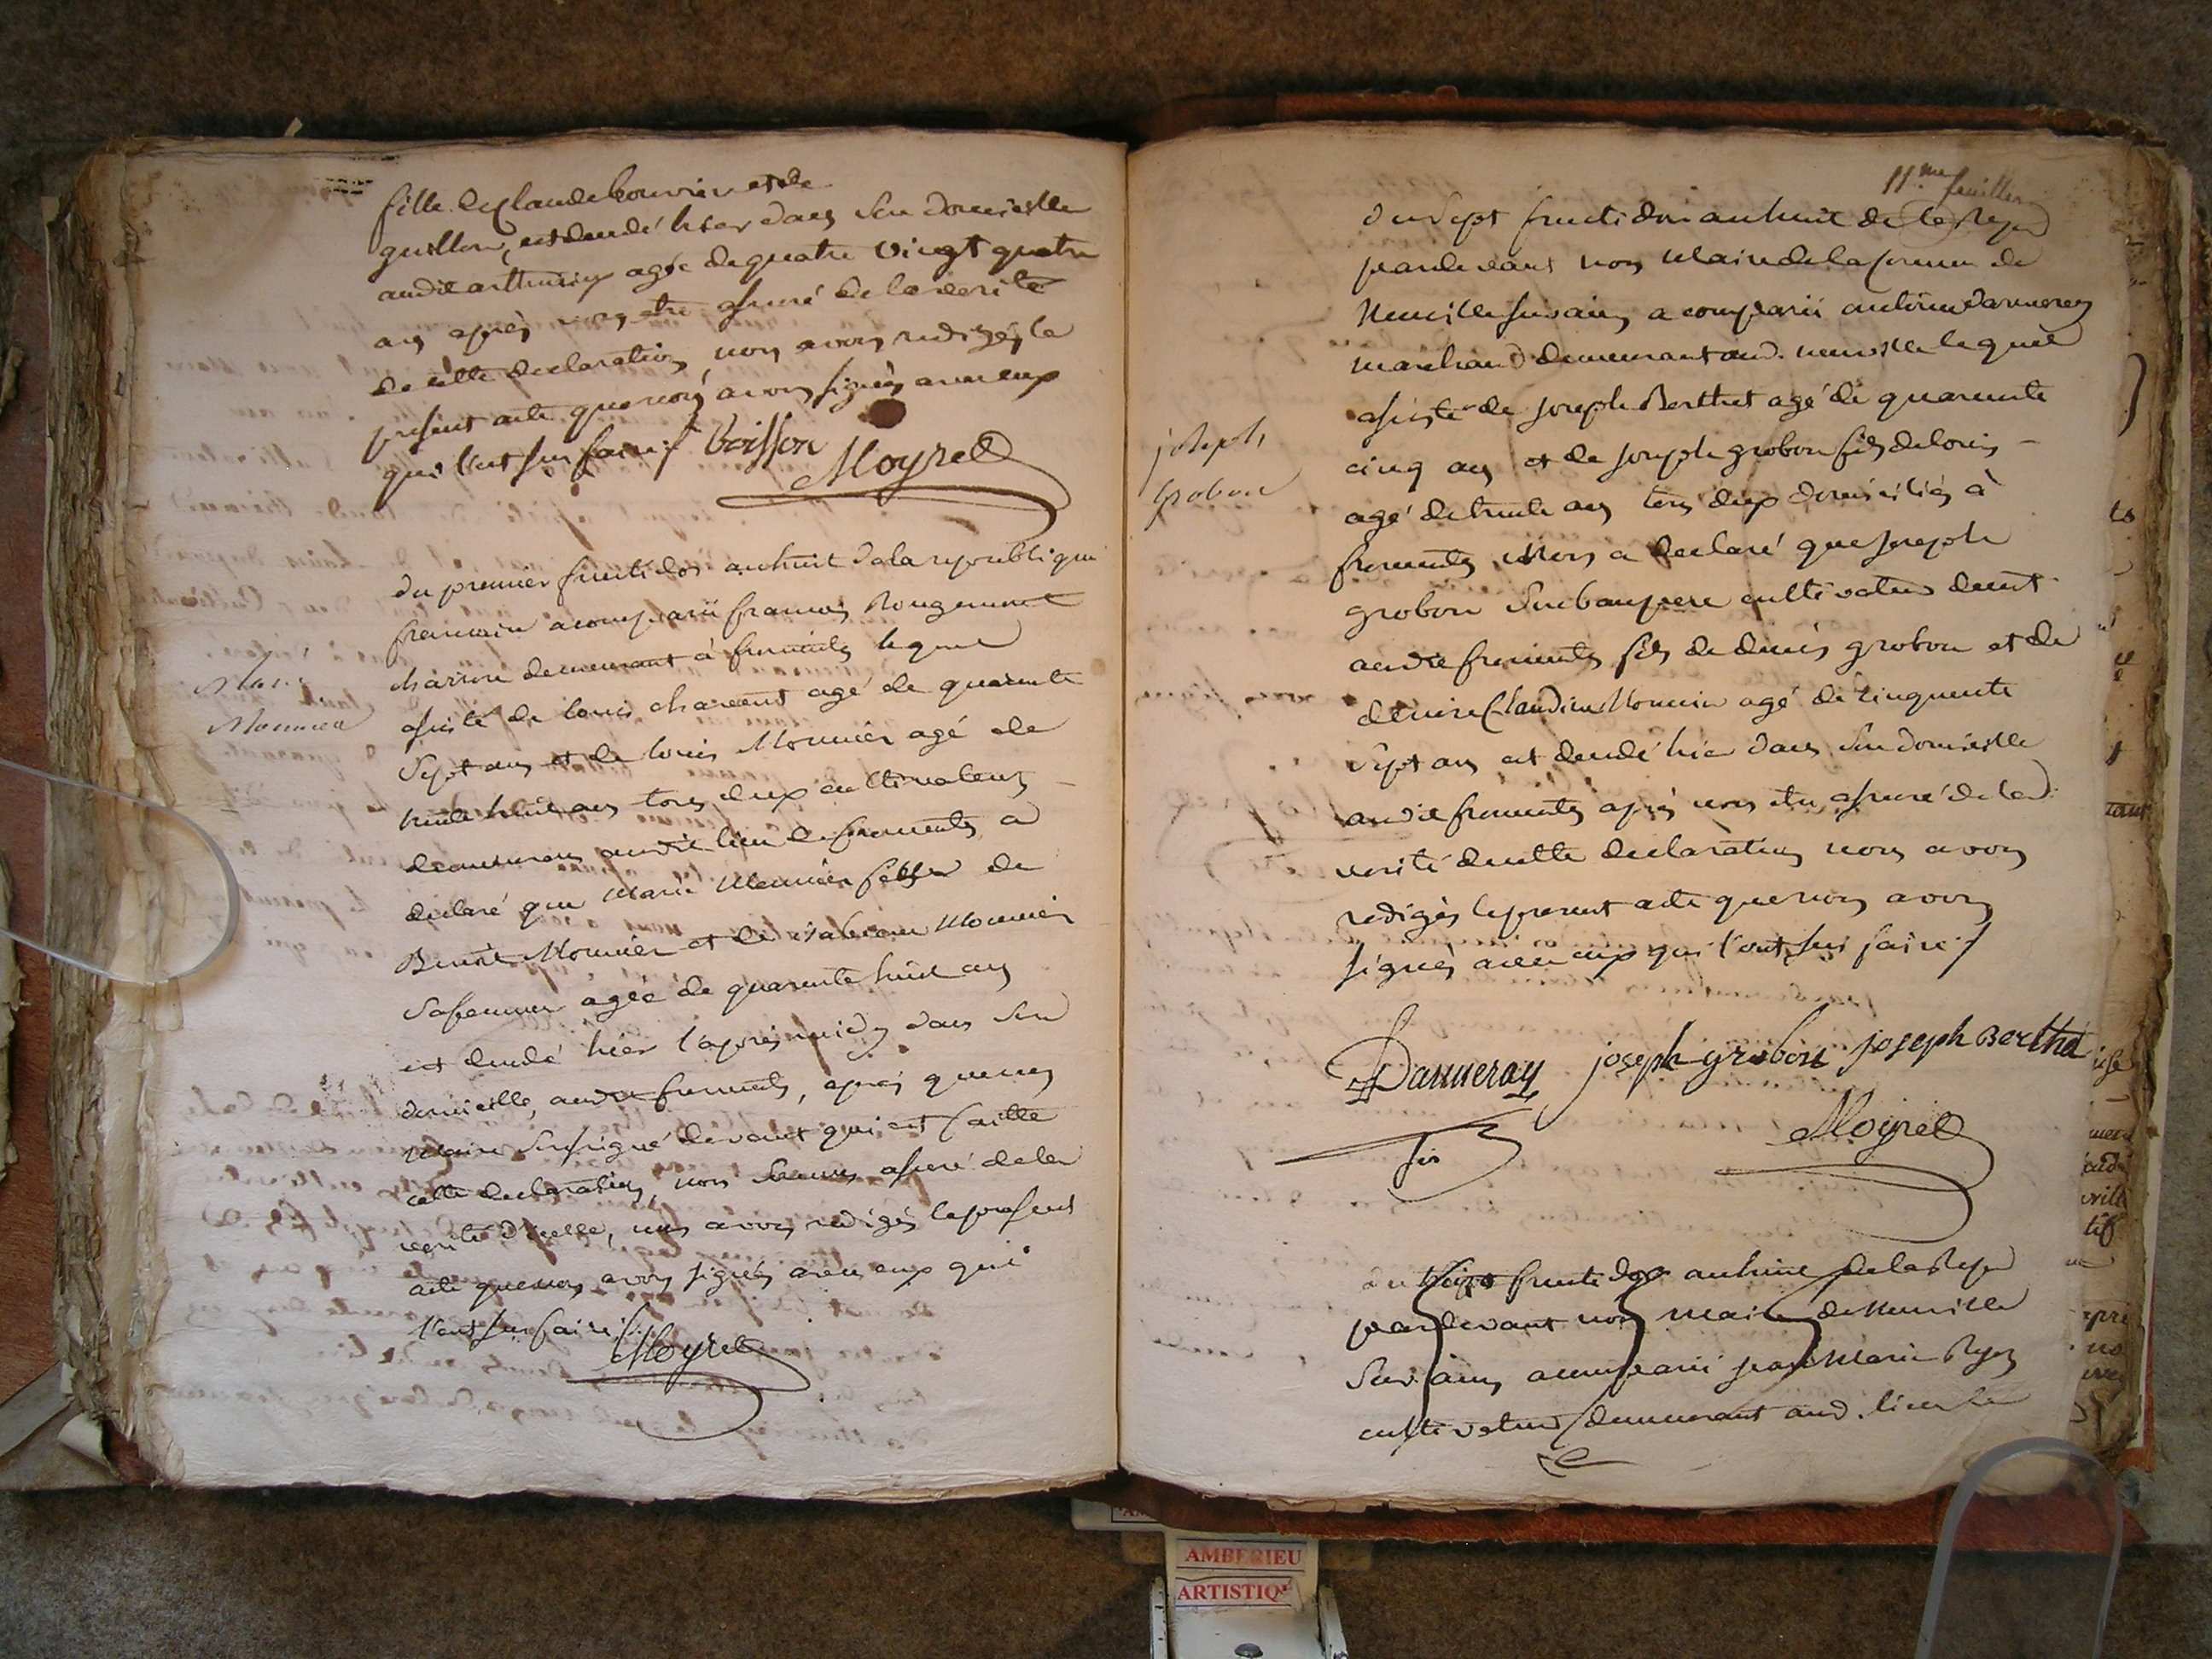 fille de Claude bouvier et de
guillon, est decedé hier dans son domicille
audit arthuney agée de quatre vingt quatre
ans après etre assuré de la verité
de cette declaration, nous avons redigés le
present acte que nous avons signés avec eux
qui l'ont su faire / Boisson
Moyret
du premier fructidor an huit de la republique
francaise a comparu francois Rougemont
charron demeurant à froments lequel
Marie
Monnier
assisté de louis charvent agé de quarente
sept ans et de louis Monnier agé de
trente huit ans tous deux cultivateurs
demeurans audit lieu de froments a
declaré que Marie Monnier fille de
Benoit Monnier et de isabeau Monnier
sa femme agée de quarente huit ans
est decedé hier l'apres midy dans son
domicille, audit froments, après que nous
maire soussigné devant qui est faitte
cette declaration, nous sommes assuré de la
verité d'icelle, nous avons redigés le present
acte que nous avons signés avec eux qui
l'ont su faire /.
Moyret
11.me feuillet
du sept fructidor an huit de la Rep
pardevant nous Maire de la commune de
Neuville sur ain, a comparu antoine danneray
marchand demeurant aud. neuville lequel
assisté de joseph Berthet agé de quarente
joseph
grobon
cinq ans et de joseph grobon fils de louis
agé de trente ans tous deux domiciliés à
froments, Nous a declaré que joseph
grobon son beaupere cultivateur demt
audit froments fils de denis grobon et de
Claudine Monnier agé de cinquente
sept ans est decedé hier dans son domicille
audit froments après nous etre assuré de la
verité de cette declaration nous avons
redigés le present acte que nous avons
signés avec eux qui l'ont su faire /
Danneray joseph grobon joseph Berthet
fils
Moyret
du fructidor an huit de la Rep
pardevant nous maire de Neuville
sur ain, a comparu jean Marie Rey
cultivateur demeurant aud. lieu le
AMBERIEU
ARTISTIQ